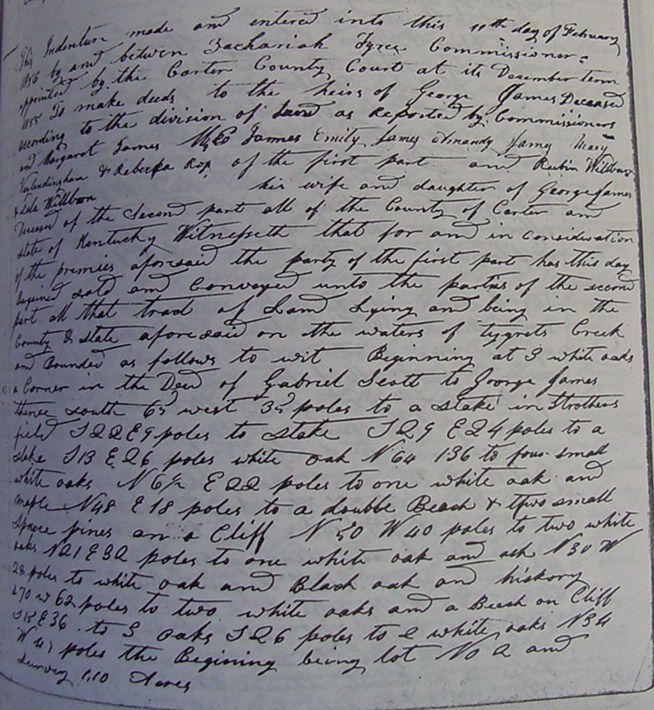 This Indenture made and entered into this 11th day of February
1856 by and between Zachariah Tyree Commissioner
appointed by the Carter County Court at its December term
1855 To make deeds to the heirs of George James Deceased
according to the division of Land as Reported by Commissioners
and Margaret James James Emily James Amandy Jamy Mary
& Rebecka of the first part and Rubin Willburn
& Willbon his wife and daughter of George James
Deceased of the second part all of the County of Carter and
state of Kentucky Witnesseth that for and in consideration
of the premises aforesaid the party of the first part has this day
bargened sold and Conveyed unto the parties of the second
part all that tract of Land Lying and being in the
County & State aforesaid on the waters of tygrets Creek
and Bounded as follows to wit Beginning at 3 white oaks
a Corner in the Deed of Gabriel Scott to George James
thence south 65 west 35 poles to a stake in Strothers
field S22E9 poles to stake S29 E24 poles to a
stake S13 E26 poles white oak N64 136 to four small
white oaks N6½ E22 poles to one white oak and
maple N48 E18 poles to a double Beach & two small
spruce pines on a Cliff N50 W40 poles to two white
oaks N21E32 poles to one white oak and ash N30 W
28 poles to white oak and Black oak and hickory
S70 W62 poles to two white oaks and a Beech on Cliff
S18E36 to 3 oaks S26 poles to 2 white oaks N34
W 47 poles the Begining being lot No 2 and
survey 110 Acres